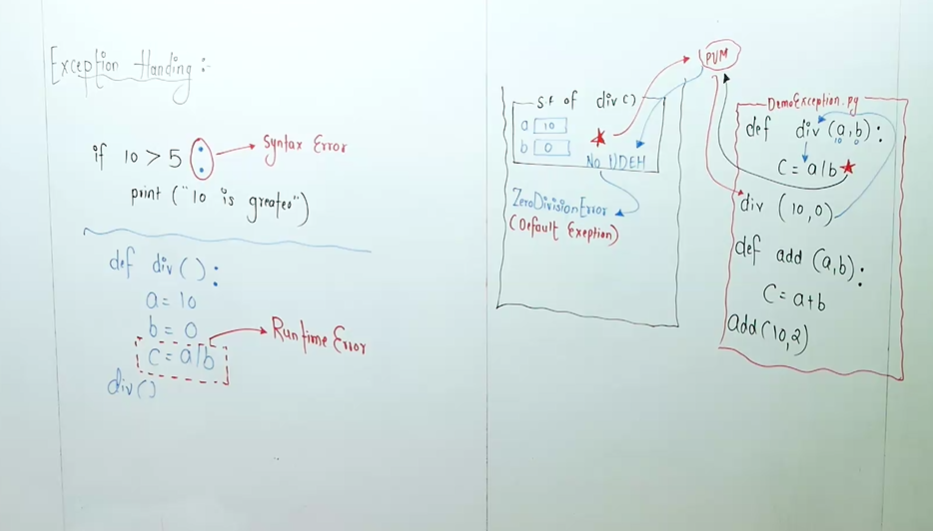 Exception Handing :-
if 10 > 5 :
Syntax Error
print ("10 is greater")
def div() :
a = 10
b = 0
c = a/b
Runtime Error
div()
PVM
S.F of div()
a 10
b 0
No UDEH
ZeroDivisionError
(Default Exeption)
DemoException.py
def div (a,b) :
10 0
C = a/b
div (10,0)
def add (a,b) :
C = a+b
add(10,2)